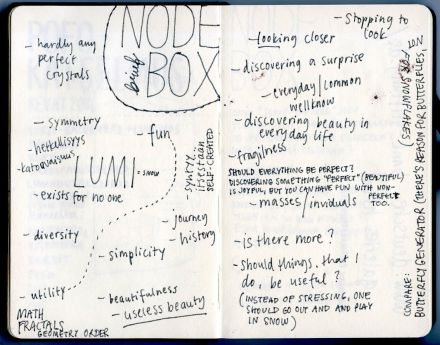 - hardly any
perfect
crystals
NODE
brief
BOX
- symmetry
- hetkellisyys
- katoavaisuus
fun
LUMI = SNOW
- exists for no one
- syntyy
itsestään
SELF-CREATED
- journey
- history
- diversity
- simplicity
- utility
- beautifulness
- useless beauty
MATH
FRACTALS
GEOMETRY ORDER
- Stopping to
look
- Looking closer
- discovering a surprise
- everyday/common
wellknow
- discovering beauty in
everyday life
- fragilness
SHOULD EVERYTHING BE PERFECT?
DISCOVERING SOMETHING "PERFECT" (BEAUTIFUL)
IS JOYFUL, BUT YOU CAN HAVE FUN WITH NON-
PERFECT
TOO.
- masses/inviduals
- is there more?
- Should things, that I
do, be useful?
(INSTEAD OF STRESSING, ONE
SHOULD GO OUT AND AND PLAY
IN SNOW)
COMPARE:
BUTTERFLY GENERATOR (THERE'S REASON FOR BUTTERFLIES,
NOT
FOR SNOWFLAKES)